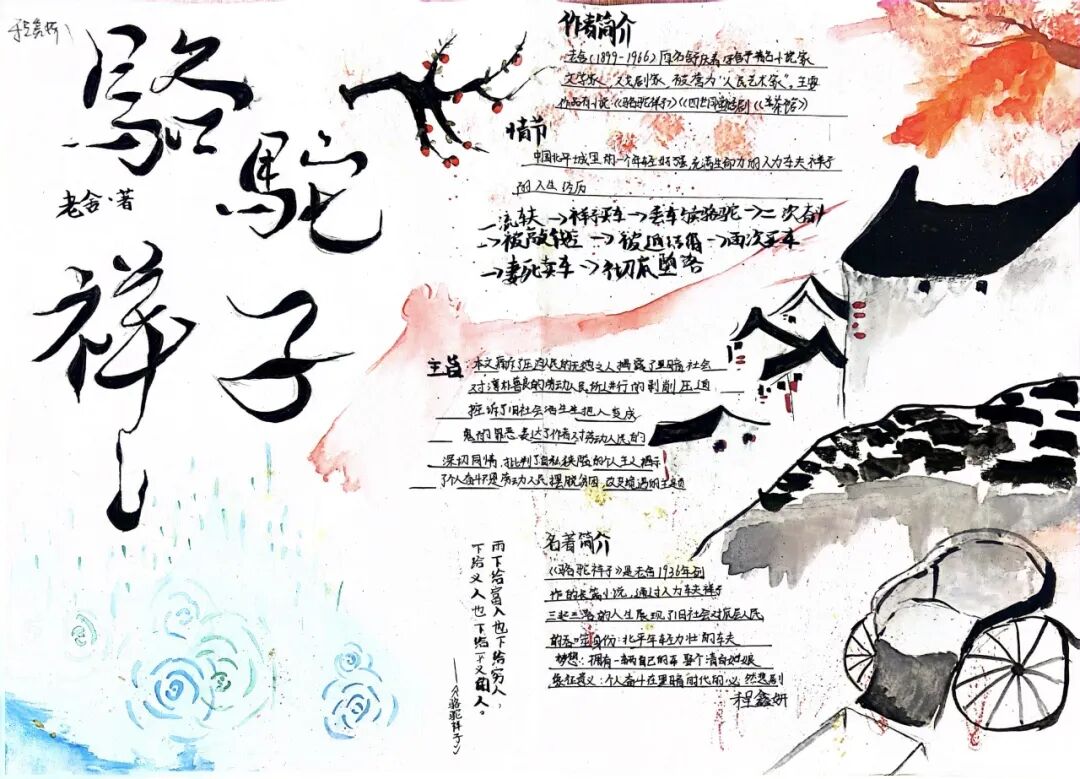 駱
駝
祥
子
老舍·著
作者简介
老舍(1899-1966)原名舒庆春
文学家、戏剧家,被誉为“人民艺术家”。主要
作品有小说《骆驼祥子》《四世同堂》话剧《茶馆》
情节
中国北平城里的一个年轻好强,充满生命力的人力车夫祥子
的人生经历
→祥子买车→丢车卖骆驼→二次奋斗
→被敲诈→被迫结婚→再次买车
→妻死卖车→彻底堕落
主旨:
揭露了黑暗社会
对淳朴善良的劳动人民所进行的剥削压迫
控诉了旧社会活生生把人变成
鬼的罪恶 表达了作者对劳动人民的
深切同情,批判了自私狭隘的个人主义 揭示
了个人奋斗不是劳动人民摆脱贫困,改变境遇的主题
雨下给富人也下给穷人,
下给义人也下给不义的人。
——《骆驼祥子》
名著简介
《骆驼祥子》是老舍1936年创
作的长篇小说,通过人力车夫祥子
三起三落的人生展现了旧社会对底层人民
身份:北平年轻力壮的车夫
梦想:拥有一辆自己的车 娶个清白姑娘
象征意义:个人奋斗在黑暗时代的必然悲剧
程鑫妍